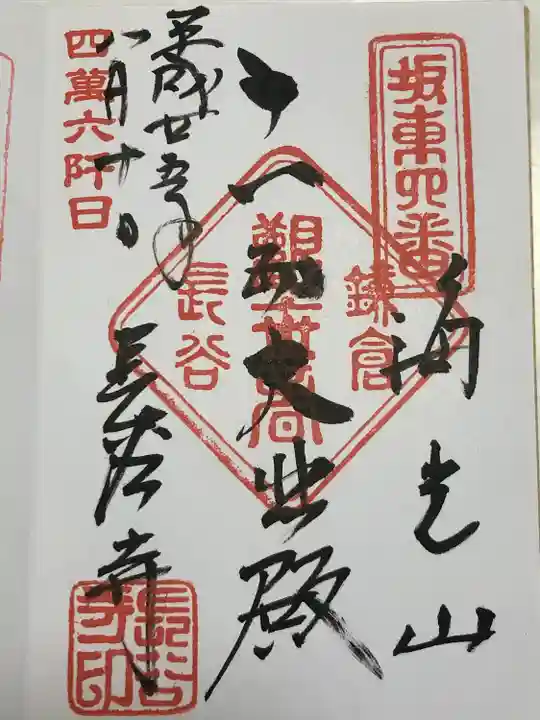 坂東四番
海光山
鎌倉
観世音
長谷
十一面大悲殿
平成廿五年
八月十日
四萬六阡日
長谷寺
長谷寺印